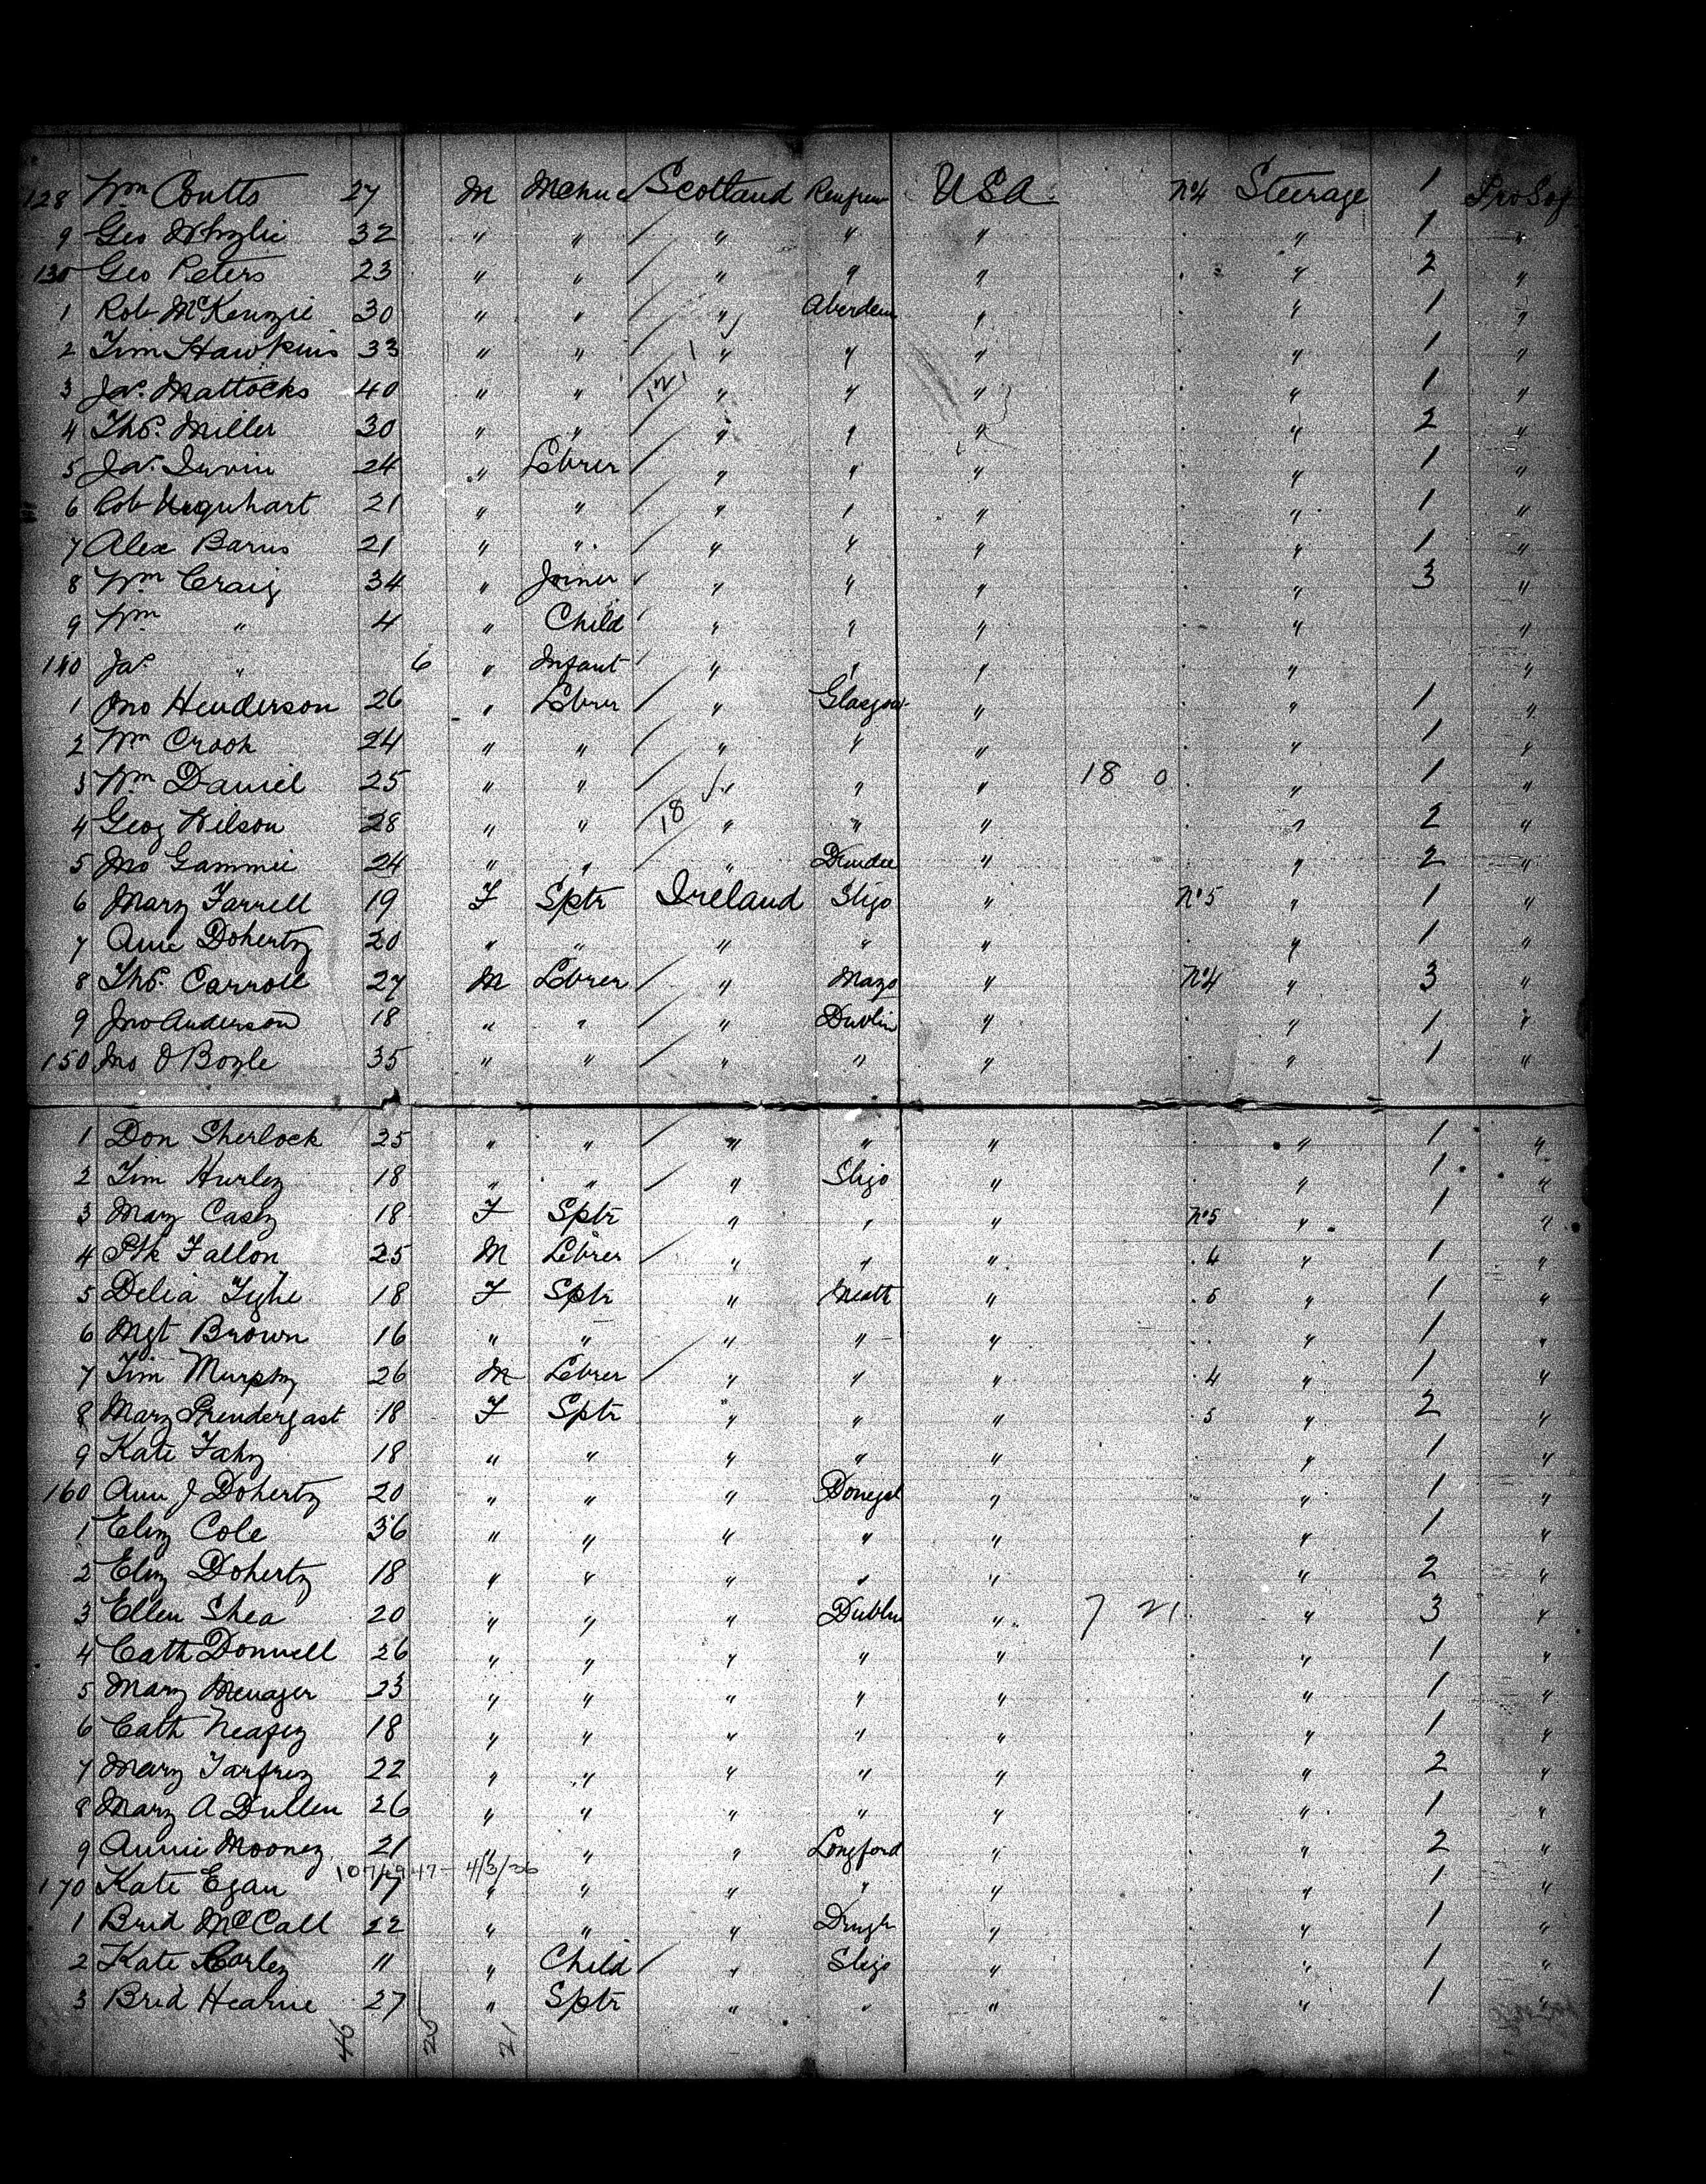 128 Wm Coutts 27 M Mchnc Scotland Renfrew USA No4 Steerage 1 Pro Soj
9 Geo Whylie 32 " " " " " " 1 "
130 Geo Peters 23 " " " " " " 2 "
1 Rob McKenzie 30 " " " Aberdeen " " 1 "
2 Tim Hawkins 33 " " " " " " 1 "
3 Jas. Mattocks 40 " " 12 " " " " 1 "
4 Thos. Miller 30 " " " " " " 2 "
5 Jas. Irvin 24 " Lbrer " " " " 1 "
6 Rob Urquhart 21 " " " " " " 1 "
7 Alex Barns 21 " " " " " " 1 "
8 Wm Craig 34 " Joiner " " " " 3 "
9 Wm " 4 " Child " " " " "
140 Jas " 6 " Infant " " " " "
1 Jno Henderson 26 " Lbrer " Glasgow " " 1 "
2 Wm Crook 24 " " " " " " 1 "
3 Wm Daniel 25 " " " " " 18 0 " 1 "
4 Geog Wilson 28 " " 18 " " " " 2 "
5 Jno Gammie 24 " " " Dundee " " 2 "
6 Mary Farrell 19 F Sptr Ireland Sligo " No5 " 1 "
7 Ann Doherty 20 " " " " " " 1 "
8 Thos. Carroll 27 M Lbrer " Mayo " No4 " 3 "
9 Jno Anderson 18 " " " Dublin " " 1 "
150 Jno O Boyle 35 " " " " " " 1 "
1 Don Sherlock 25 " " " " " " 1 "
2 Tim Hurley 18 " " " Sligo " " 1 "
3 Mary Casey 18 F Sptr " " " No5 " 1 "
4 Ptk Fallon 25 M Lbrer " " " 4 " 1 "
5 Delia Tighe 18 F Sptr " Meath " 5 " 1 "
6 Mgt Brown 16 " " " " " " 1 "
7 Tim Murphy 26 M Lbrer " " " 4 " 1 "
8 Mary Prendergast 18 F Sptr " " " 5 " 2 "
9 Kate Fahy 18 " " " " " " 1 "
160 Ann J Doherty 20 " " " Donegal " " 1 "
1 Eliz Cole 36 " " " " " " 1 "
2 Eliz Doherty 18 " " " " " " 2 "
3 Ellen Shea 20 " " " Dublin " 7 21 " 3 "
4 Cath Donnell 26 " " " " " " 1 "
5 Mary Menager 23 " " " " " " 1 "
6 Cath Neafey 18 " " " " " " 1 "
7 Mary 22 " " " " " " 2 "
8 Mary A Dullen 26 " " " " " " 1 "
9 Annie Mooney 21 " " " Longford " " 2 "
4/3/36
170 Kate Egan 17 " " " " " " 1 "
1 Brid McCall 22 " " " " " 1 "
2 Kate Corley 11 " Child " Sligo " " 1 "
3 Brid Hearne 27 " Sptr " " " " 1 "
46 25 21